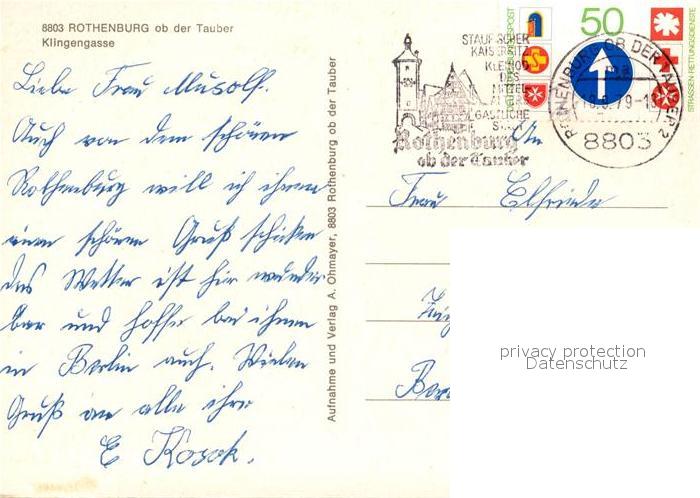 8803 ROTHENBURG ob der Tauber
Klingengasse
Liebe Frau Musolf.
Auch von dem schönen
Rothenburg will ich ihnen
einen schönen Gruß schicken
das Wetter ist hier wunder
bar und hoffe bei ihnen
in Berlin auch. Vielen
Gruß an alle ihre
E Kosok.
Aufnahme und Verlag A. Ohmayer, 8803 Rothenburg ob der Tauber
STAUFISCHER
KAISERSITZ
KLEINOD
DES
MITTEL
GASTLICHE
Rothenburg
ob der Tauber
50
STRASSEN RETTUNGSDIENSTE
ROTHENBURG OB DER TAUBER 2
ma
8803
An
Frau Elfriede
privacy protection
Datenschutz